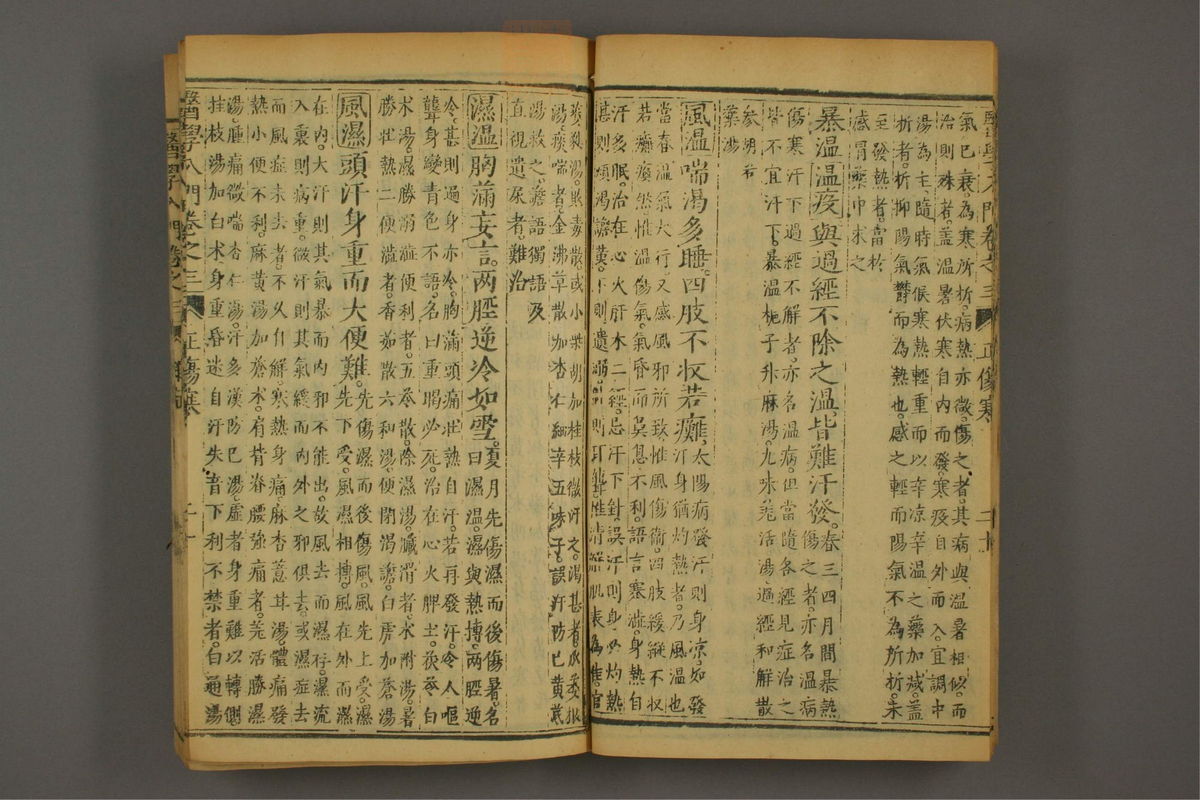 醫學入門卷之三 正傷寒 二十
氣已衰為寒所折病熱亦微傷之者其病與溫暑相似而
治則殊者蓋溫暑伏寒自內而發寒疫自外而入宜調中
湯為主隨時氣候寒熱輕重而以辛涼辛溫之藥加減蓋
折者折抑陽氣欝而為熱也感之輕而陽氣不為所折未
至發熱者當於
感冒藥中求之
暴溫溫疫與過經不除之溫皆難汗發春三四月間暴熱
傷之者亦名溫病
傷寒汗下過經不解者亦名溫病但當隨各經見症治之
皆不宜汗下暴溫梔子升麻湯九味羌活湯過經和解散
參胡芍
藥湯
風溫喘渴多睡四肢不收若癱太陽病發汗則身涼如發
汗身猶灼熱者乃風溫也
當春溫氣大行又感風邪所致惟風傷衛四肢緩縱不收
若癱瘓然惟溫傷氣氣昏而鼻息不利語言蹇澁身熱自
汗多眠治在心火肝木二經忌汗下針誤汗則身必灼熱
甚則煩渴譫黃下則遺溺針則耳聾惟清解肌表為佳宜
葳蕤湯敗毒散或小柴胡加桂枝微汗之渴甚者瓜蔞根
湯痰喘者金沸草散加杏仁細辛五味子誤汗防已黃芪
湯救之譫語獨語及
直視遺尿者難治
濕溫胸滿妄言两脛逆冷如雪夏月先傷濕而後傷暑名
曰濕溫濕與熱搏两脛逆
冷甚則過身亦冷胸滿頭痛壯熱自汗若再發汗令人嘔
聾身變青色不語名曰重暍必死治在心火脾土茯苓白
术湯濕勝溺澁便利者五苓散除濕湯臟滑者术附湯暑
勝壯熱二便澁者香茹散六和湯便閉渴譫白虎加蒼湯
風濕頭汗身重而大便難先傷濕而後傷風風先上受濕
先下受風濕相搏風在外而濕
在內大汗則其氣暴而內邪不能出故風去而濕存濕流
入裏則病重微汗則其氣緩而內外之邪俱去或濕症去
而風症未去者不久自解寒熱身痛麻杏薏苡湯體痛發
熱小便不利麻黃湯加蒼术有背脊腰強痛者羌活勝濕
湯腫痛微喘杏仁湯汗多漢防巳湯虛者身重難以轉側
桂枝湯加白术身重昏迷自汗失音下利不禁者白通湯
醫學入門卷之三 正傷寒 二十一